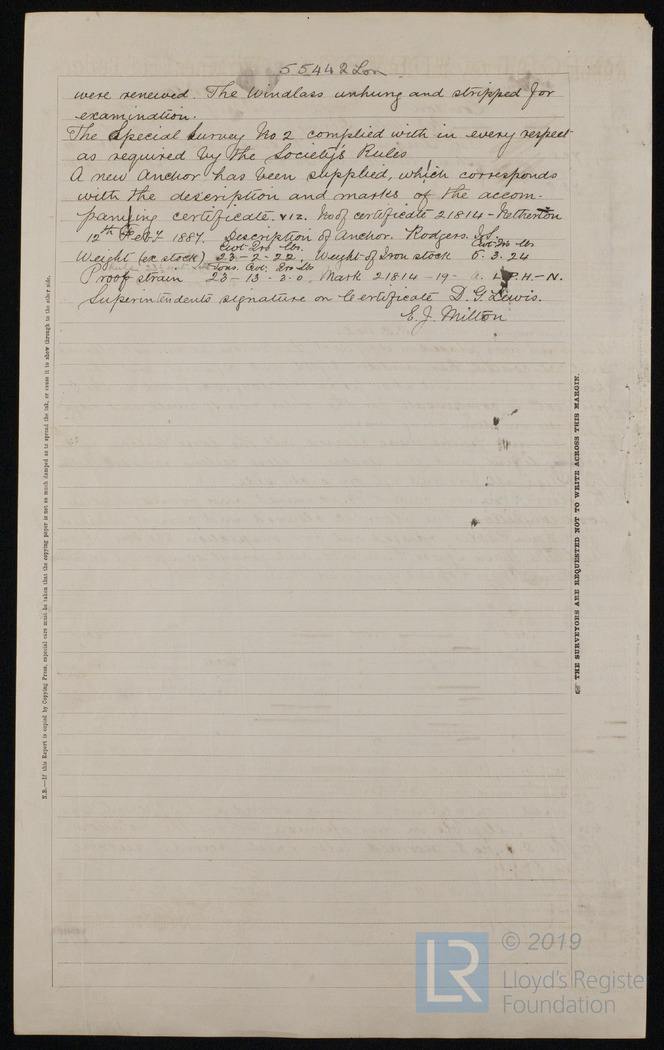 55442 Lon
were renewed. The Windlass unhung and stripped for
examination.
The Special Survey No 2 complied with in every respect
as required by the Society's Rules
A new Anchor has been supplied, which corresponds
with the description and marks of the accom-
panying certificate. viz. No of certificate 21814 - Netherton
12th Feby 1887. Description of Anchor. Rodgers.
Cwt. Qrs lbs. Cwt. Qrs lbs
Weight (ex stock) 23 - 2 - 22. Weight of Iron stock 5. 3. 24
Tons. Cwt. Qrs lbs
Proof strain 23 - 13 - 3 - 0. Mark 21814 - 19 - P.H. - N.
Superintendents signature on Certificate D. G. Lewis.
E. J. Milton
N.B.—If this Report is copied by Copying Press, especial care must be taken that the copying paper is not so much damped as to spread the ink, or cause it to show through to the other side.
THE SURVEYORS ARE REQUESTED NOT TO WRITE ACROSS THIS MARGIN.
LR
© 2019
Lloyd's Register
Foundation